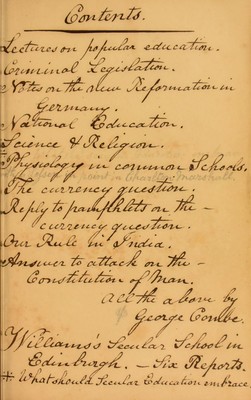 Contents.
Lectures on popular education.
Criminal Legislation.
Notes on the New Reformation in
Germany.
National Education.
Science & Religion.
Physiology in common Schools.
The currency question.
Reply to pamphlets on the –
currency question.
Our Rule in India.
Answer to attack on the –
Constitution of Man.
All the above by
George Combe.
Williams's Secular School in
Edinburgh. – Six Reports.
What should Secular Education embrace